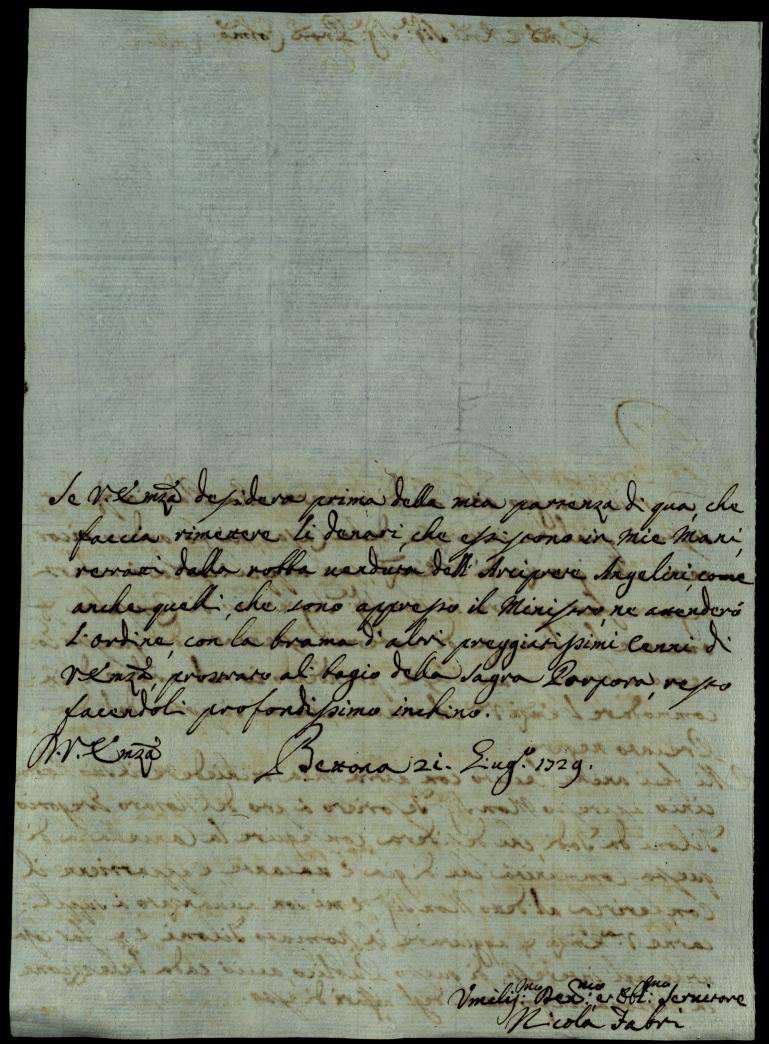 Se V. Emza desidera prima della mia partenza di qua, che
faccia rimettere li denari, che esistono in mie Mani,
retratti dalla robba venduta dell' Arciprete Angelini, come
anche quelli, che sono appresso il Ministro, ne attenderó
l'ordine, con la brama d'altri preggiatissimi Cenni di
V. Emza, prostrato al bagio della Sagra Porpora, resto
facendoli profondissimo inchino.
D. V. Emza Bettona 21. Lug.º 1729.
Umiliss:mo Dev:mo et Obl:mo Servitore
Nicola Fabri